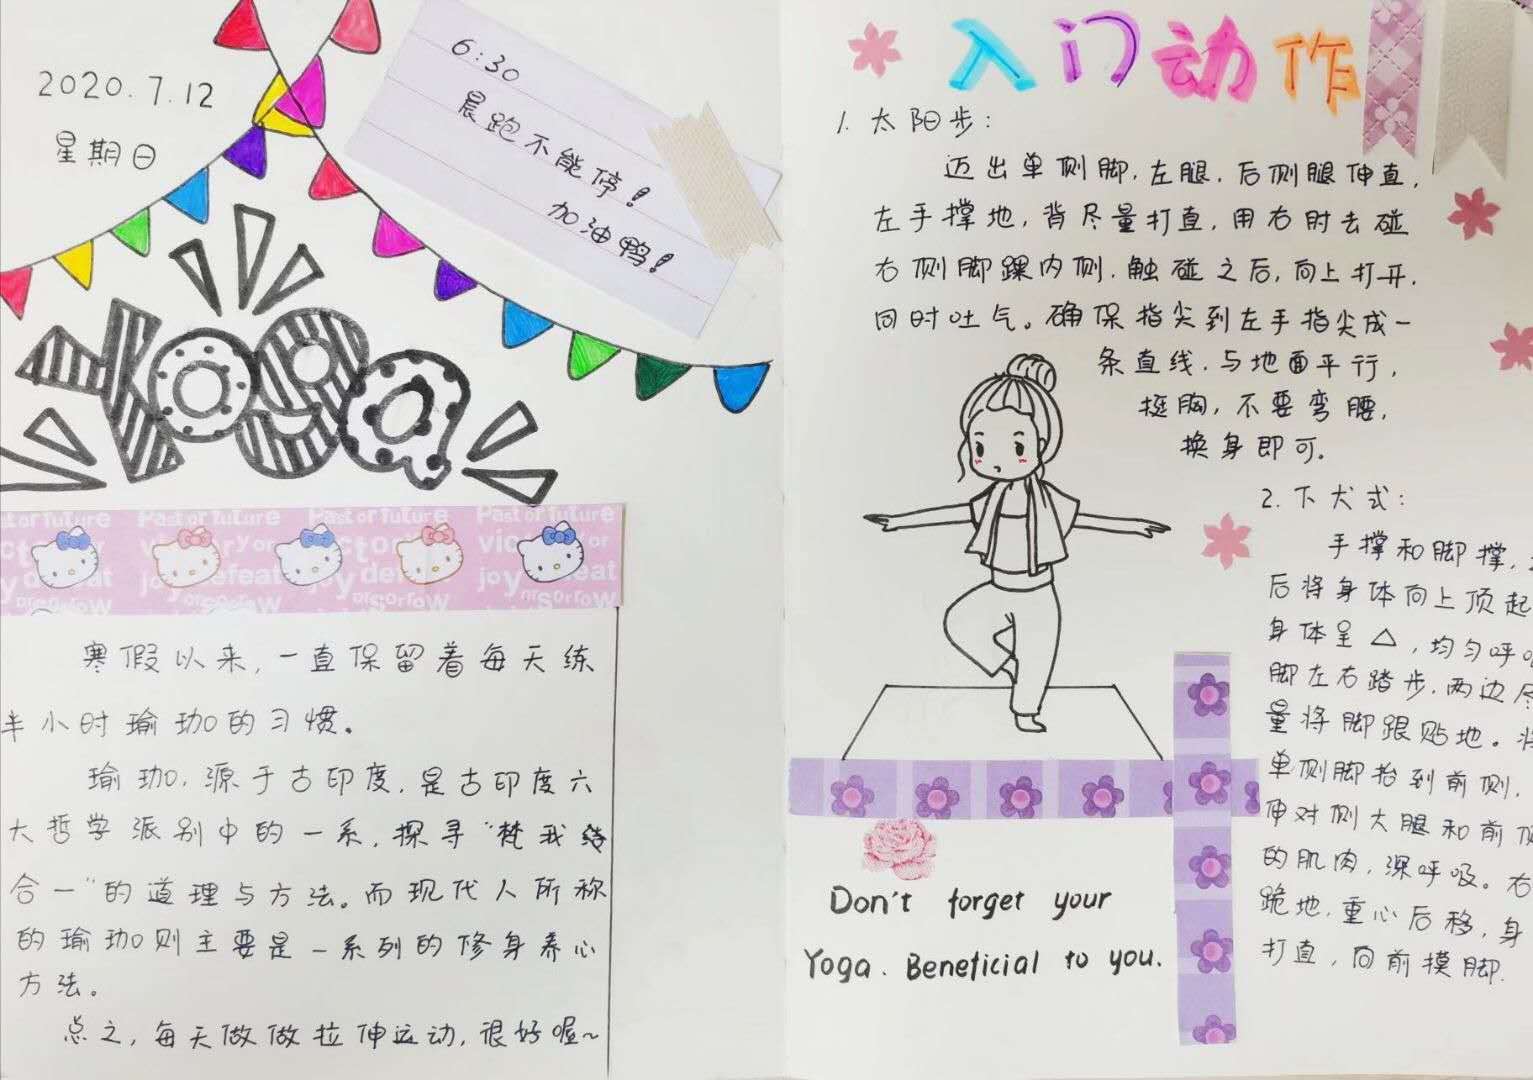 2020.7.12
星期日
6:30
晨跑不能停!
加油鸭!
YOGA
Past or future
victory or defeat
joy or sorrow
寒假以来,一直保留着每天练
半小时瑜珈的习惯。
瑜珈,源于古印度,是古印度六
大哲学派别中的一系,探寻"梵我结
合一"的道理与方法。而现代人所称
的瑜珈则主要是一系列的修身养心
方法。
总之,每天做做拉伸运动,很好喔~
入门动作
1. 太阳步:
迈出单侧脚,左腿,后侧腿伸直,
左手撑地,背尽量打直,用右肘去碰
右侧脚踝内侧,触碰之后,向上打开,
同时吐气。确保指尖到左手指尖成一
条直线,与地面平行,
挺胸,不要弯腰,
换身即可。
2. 下犬式:
手撑和脚撑,
后将身体向上顶起
身体呈△,均匀呼
脚左右踏步,两边尽
量将脚跟贴地。将
单侧脚抬到前侧,
伸对侧大腿和前侧
的肌肉,深呼吸。右
跪地,重心后移,身
打直,向前摸脚.
Don't forget your
Yoga. Beneficial to you.